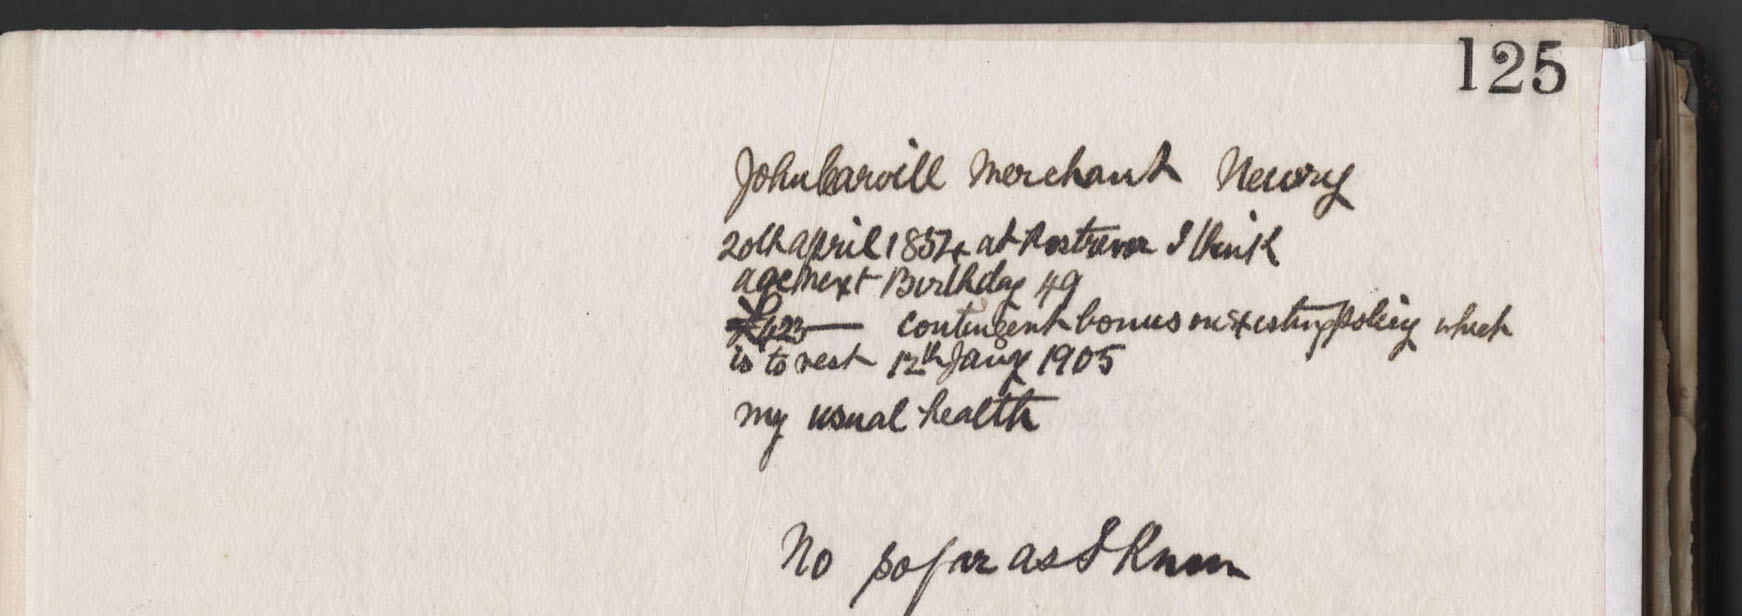 125
John Carvill Merchant Newry
20th april 1854 at Rostrevor I think
age next Birthday 49
£423 — contingent bonus on existing policy which
is to vest 12th Jany 1905
my usual health
No so far as I Know